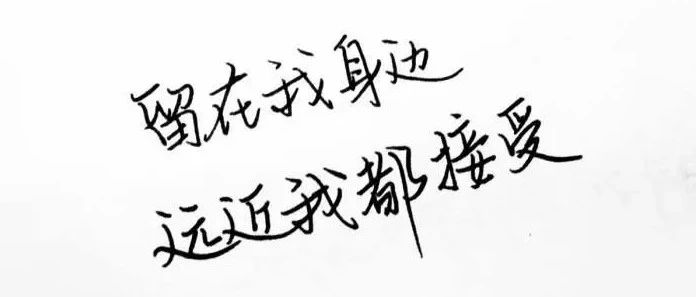 留在我身边
远近我都接受